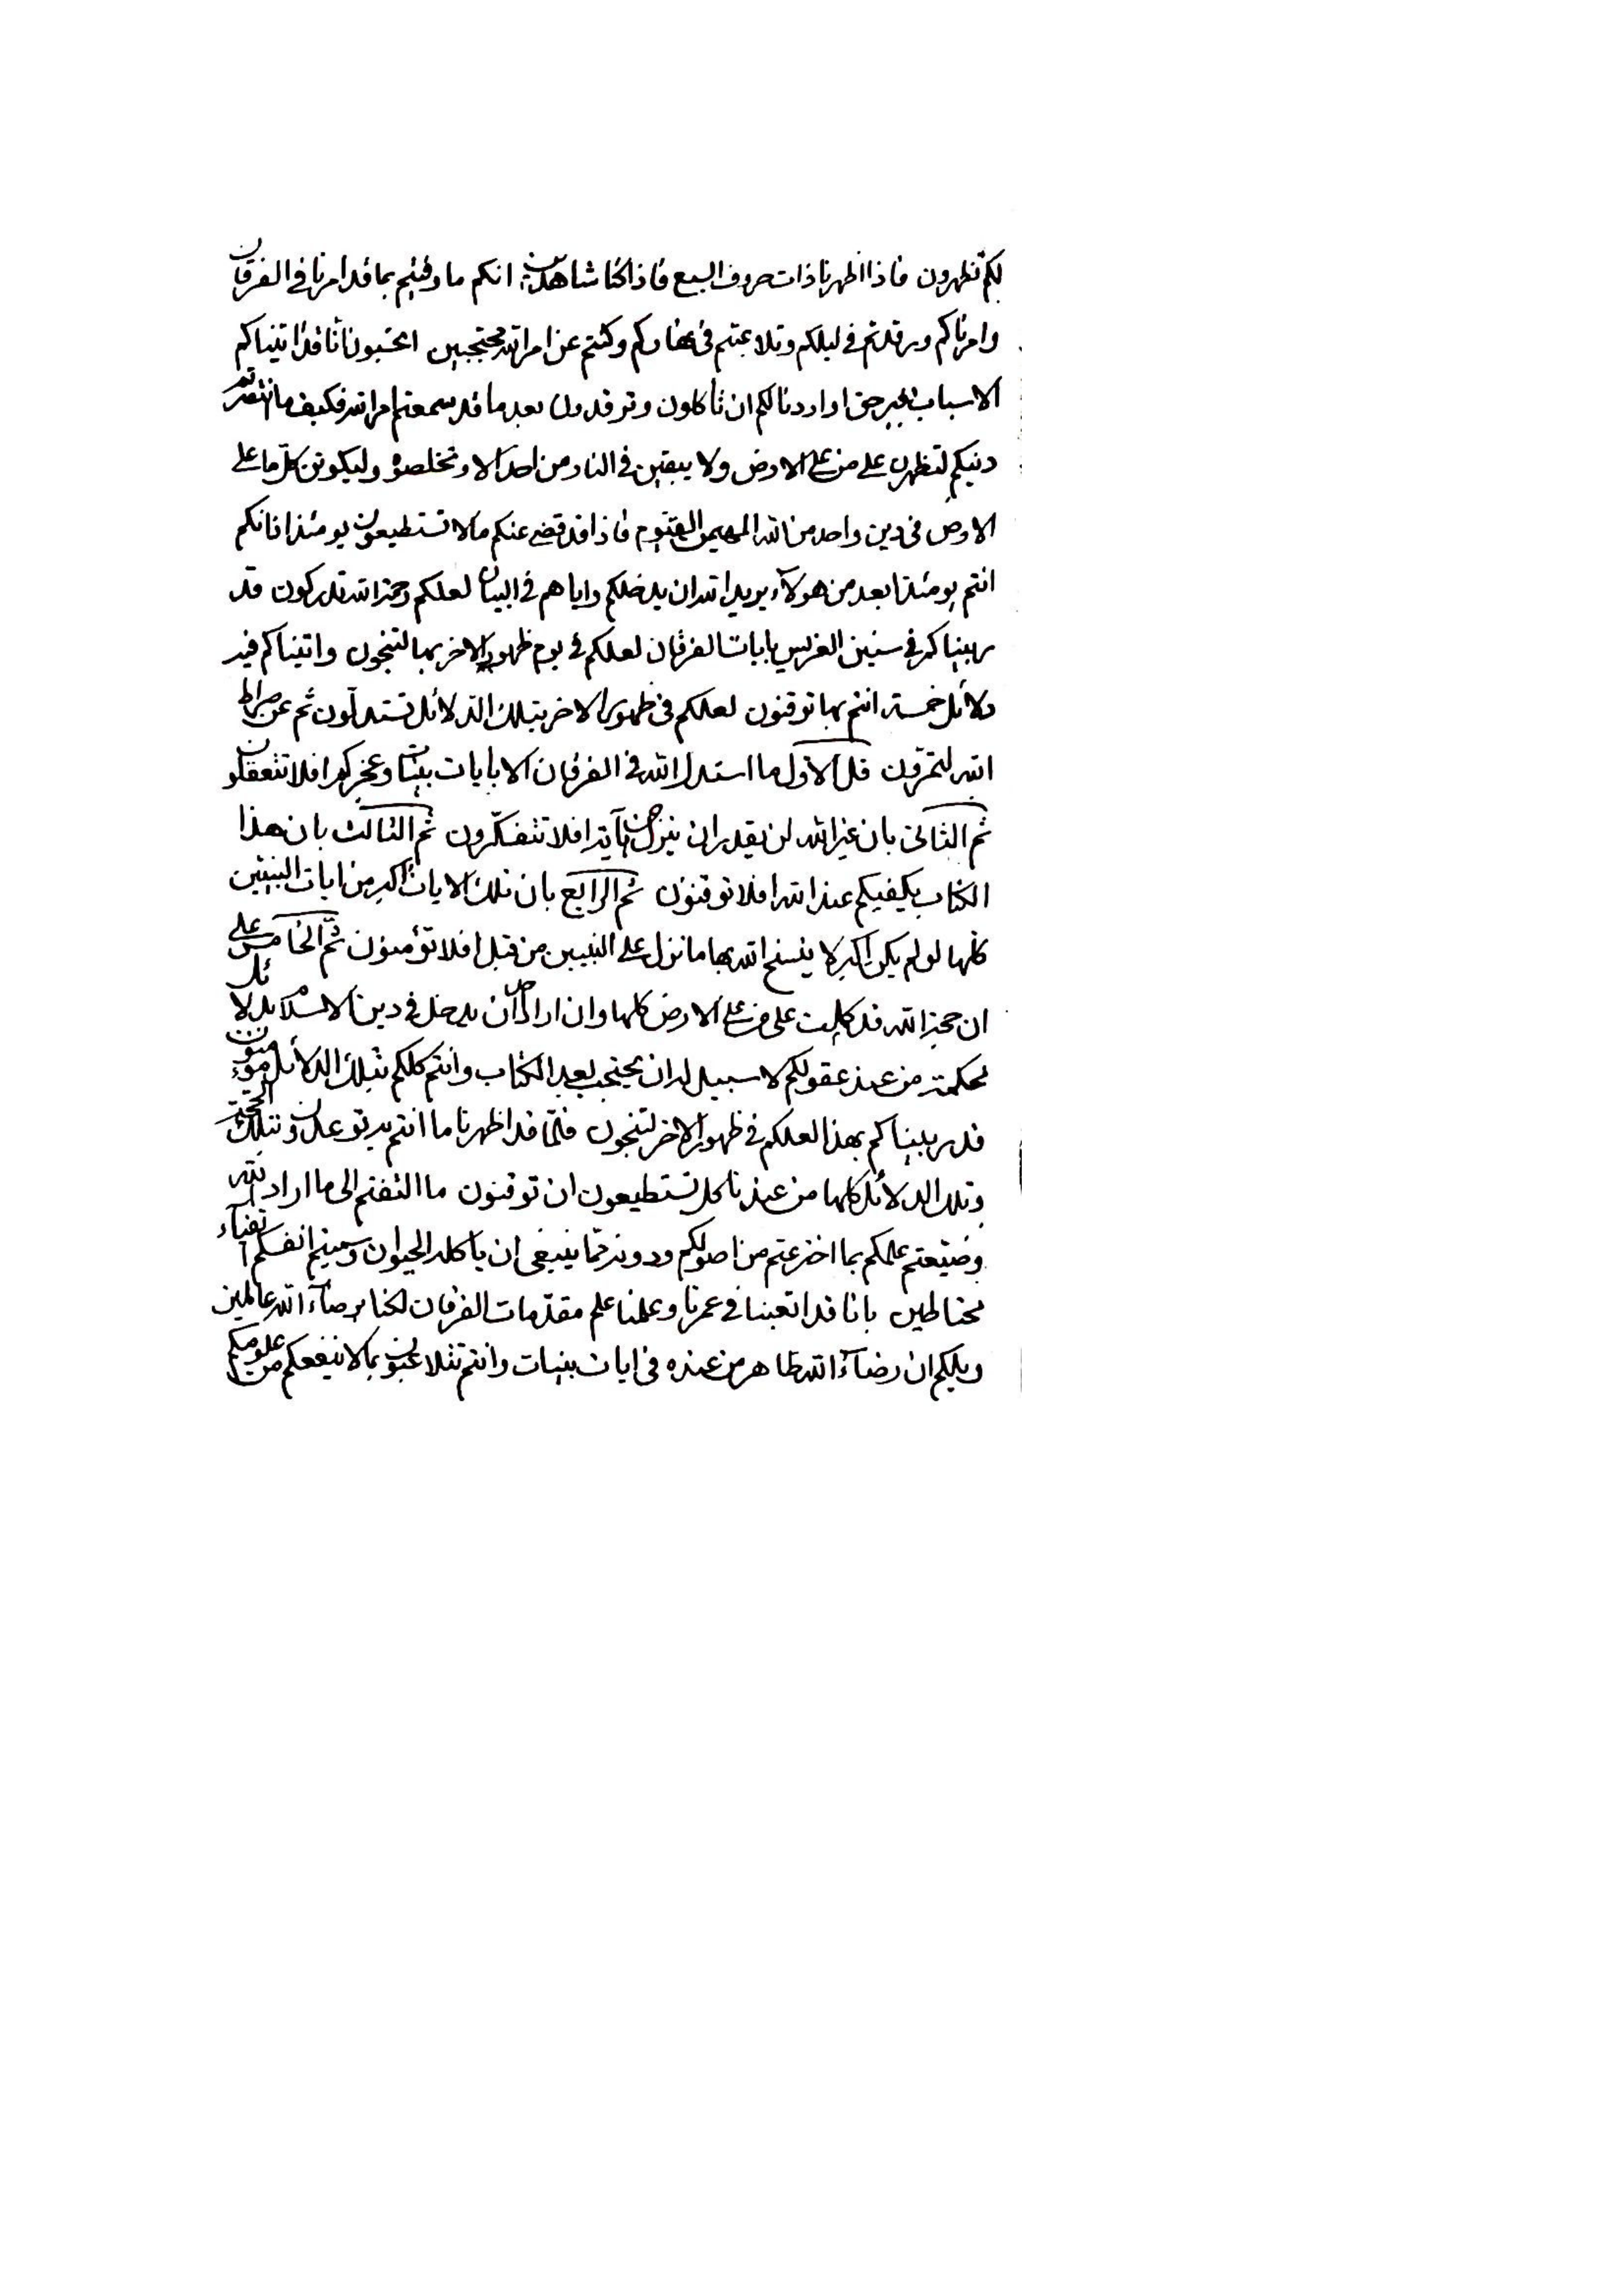 لكم تظهرون فاذا اظهرنا ذات حروف السبع فاذا كنا شاهدين انكم ما وفيتم بما قد امرنا في الفرقان
وامرناكم ورقدتم في ليلكم وتلاعبتم في نهاركم وكنتم عن امر الله محتجبين اتحسبون انا قد اتيناكم
الاسباب بغير حق او اردنا لكم ان تاكلون وترقدون بعد ما قد سمعتم امر الله فكيف ما انتصرتم
دينكم لتظهرن على من على الارض ولا يبقين في النار من احد الا وتخلصوه وليكونن كل ما على
الارض في دين واحد من الله المهيمن القيوم فاذا قد قضى عنكم ما لا تستطيعون يومئذ فانكم
انتم يومئذ ابعد من هولآء يريد الله ان يدخلكم واياهم في البيان لعلكم رحمة الله تدركون قد
ربيناكم في سنين الغرس بايات الفرقان لعلكم في يوم ظهور الاخر بها لتنجون واتيناكم فيه
دلائل خمسة انتم بها توقنون لعلكم في ظهور الاخر بتلك الدلائل تستدلون ثم عن صراط
الله لتمرون قل الاول ما استدل الله في الفرقان الا بايات بينات وعجز كل افلا تتعقلون
ثم الثاني بان غير الله لن يقدر ان ينزل من آية افلا تتفكرون ثم الثالث بان هذا
الكتاب يكفيكم عند الله افلا توقنون ثم الرابع بان تلك الايات اكبر من ايات النبيين
كلها لو لم يكن اكبر لا ينسخ الله بها ما نزل على النبيين من قبل افلا تؤمنون ثم الخامس على
ان حجة الله قد كملت على من على الارض كلها وان اراد ان يدخل في دين الاسلام بدلائل
محكمة من عند عقولكم لا سبيل له ان يحتجب بعد الكتاب وانتم كلكم بتلك الدلائل موءمنون
قد ربيناكم بهذا لعلكم في ظهور الاخر لتنجون فلما قد اظهرنا ما انتم به توعدون وبتلك الحجة
وتلك الدلائل كلها من عندنا كل تستطيعون ان توقنون ما التفتم الى ما اراد الله
وضيعتم علمكم بما اخترعتم من اصولكم ودونه مما ينبغي ان ياكله الحيوان وسميتم انفسكم اتقيآء
محتاطين بانا قد اتعبنا في عمرنا وعلمنا علم مقدمات الفرقان لكنا برضاء الله عالمين
ويلكم ان رضآء الله ظاهر من عنده في ايات بينات وانتم تتلاعبون بما لا ينفعكم من علومكم